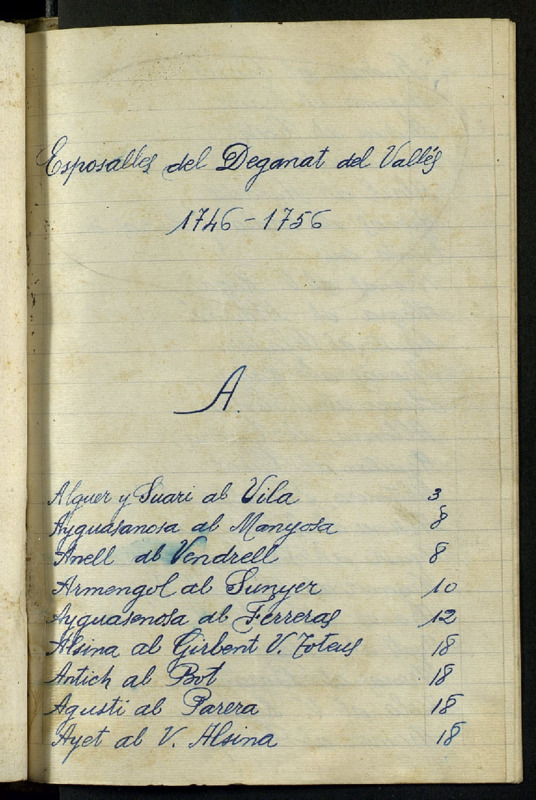 Esposalles del Deganat del Vallés
1746-1756
A.
Alguer y Suari ab Vila 3
Ayguasanosa ab Manyosa 8
Anell ab Vendrell 8
Armengol ab Sunyer 10
Ayguasenosa ab Ferreras 12
Alsina ab Girbent V. Toteus 18
Antich ab Bot 18
Agusti ab Parera 18
Ayet ab V. Alsina 18